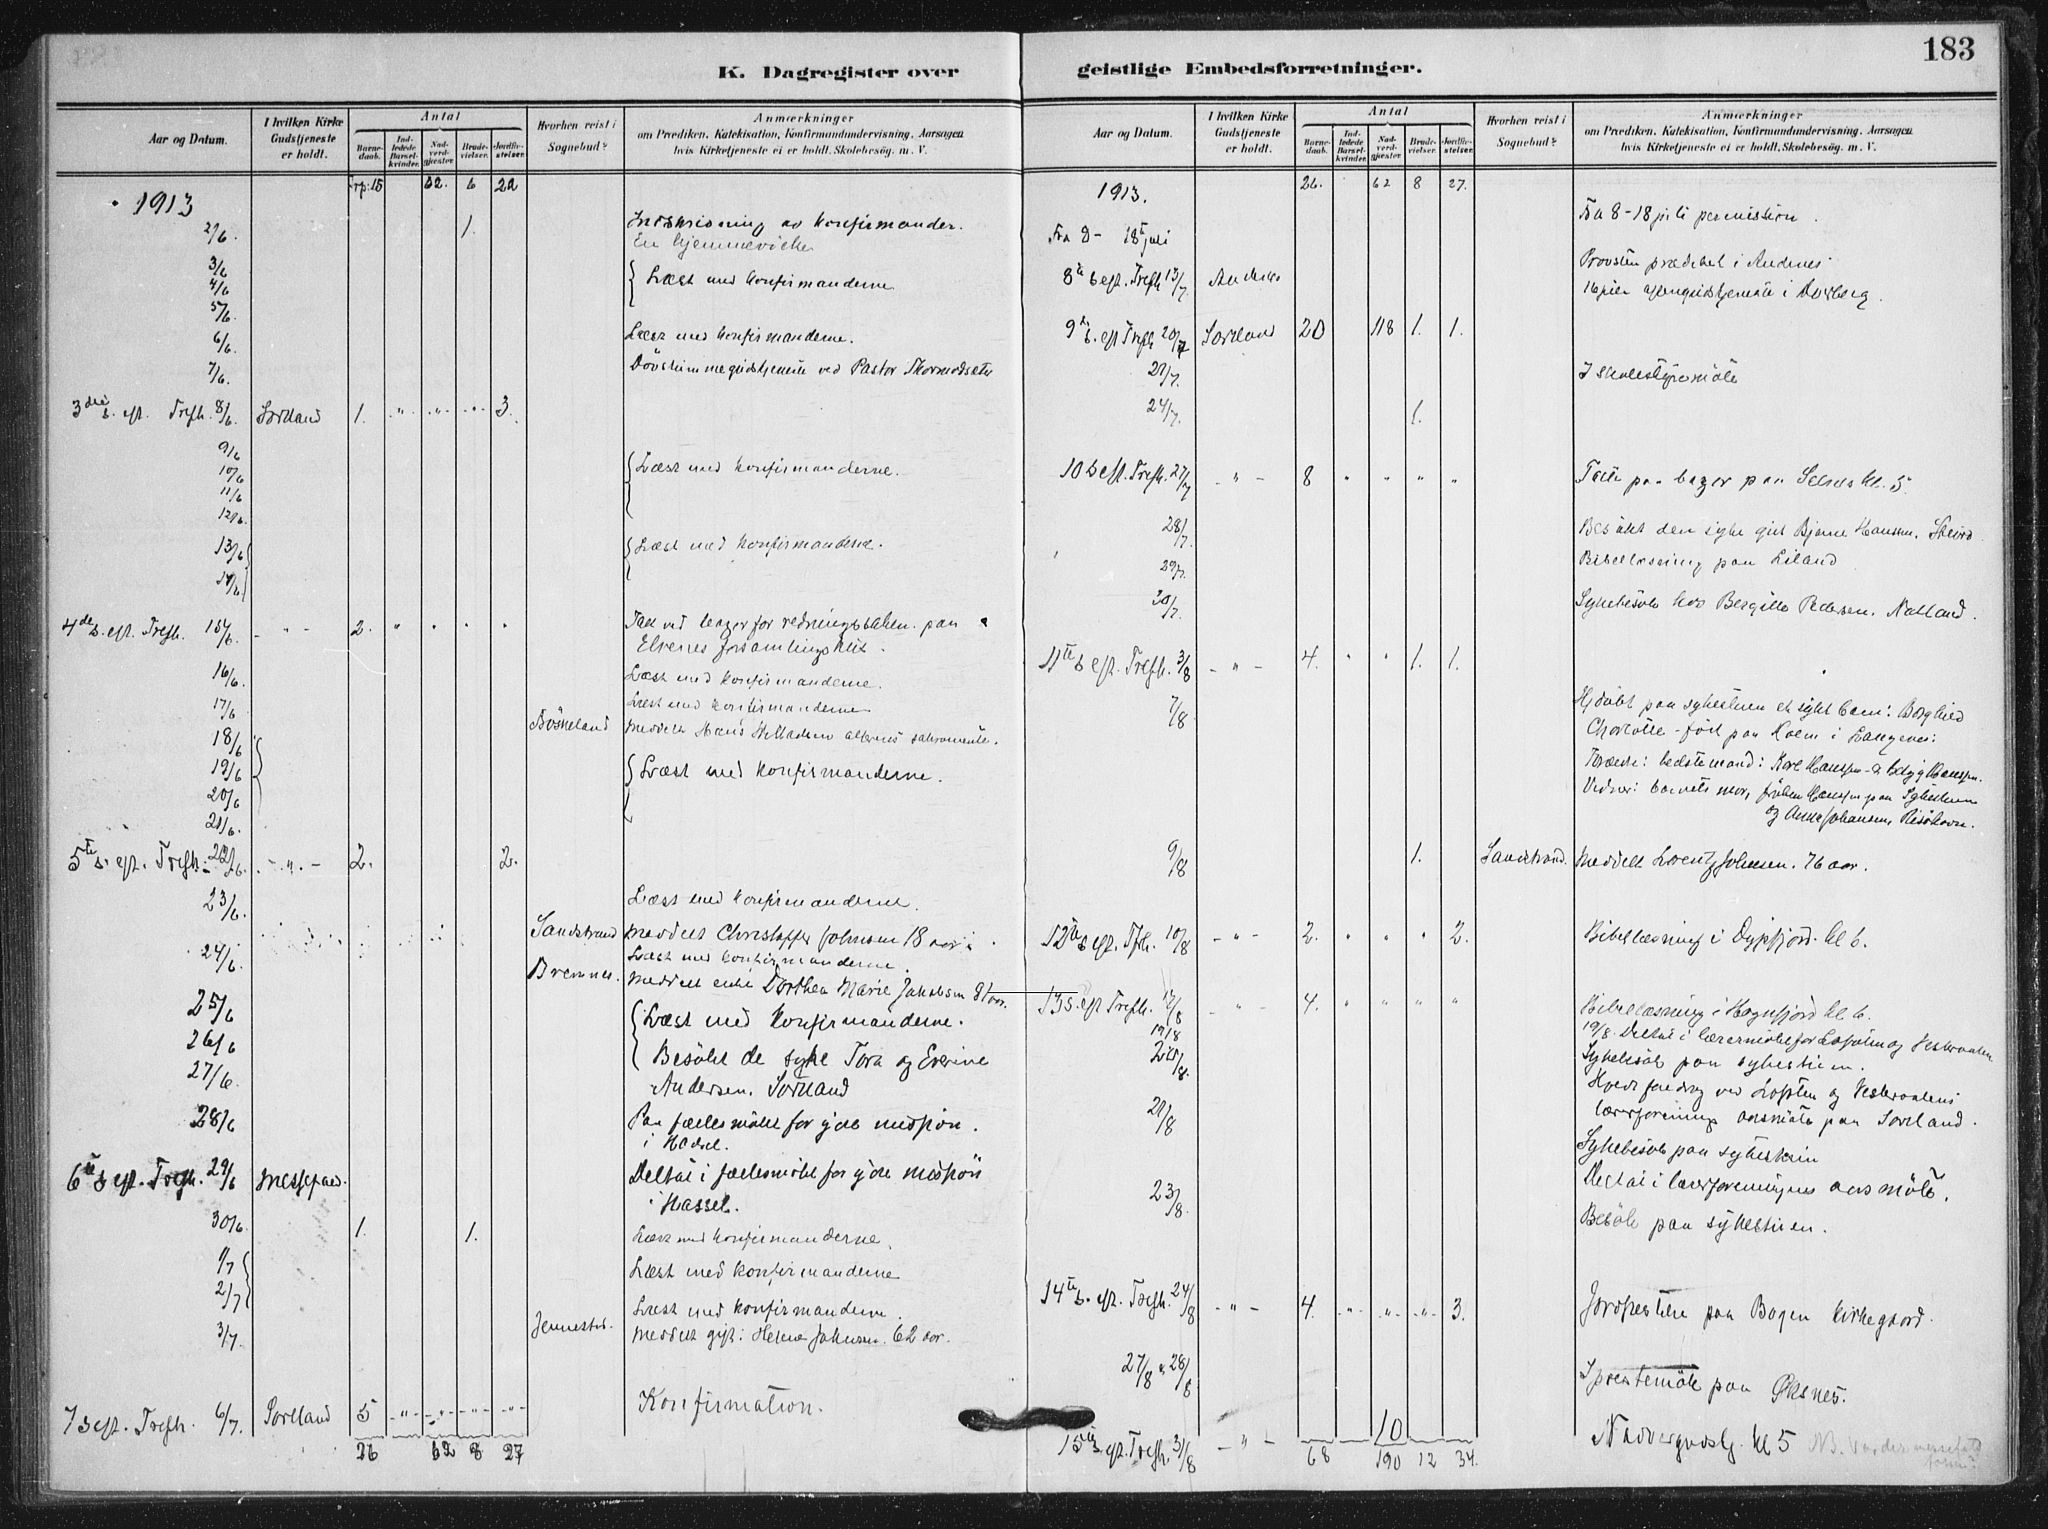 183
K. Dagregister over geistlige Embedsforretninger.
Aar og Datum.
I hvilken Kirke Gudstjeneste er holdt.
Antal
Barnedaab.
Indledede Barselkvinder.
Nadverdgjester
Brudevielser.
Jordfæstelser.
Hvorhen reist i Sognebud?
Anmærkninger
om Prædiken, Katekisation, Konfirmandundervisning, Aarsagen
hvis Kirketjeneste ei er holdt, Skolebesøg. m. V.
15 62. 6 22
1913
2/6. 1. Indskrivning av konfirmander.
En hjemmevielse
3/6
4/6 Læst med konfirmanderne
5/6.
6/6 Læst med konfirmanderne.
7/6. Døvstummegudstjeneste ved Pastor
3die s. eft. Trefh. 8/6. Sortland 1. " " " 3.
9/6
10/6 Læst med konfirmanderne.
11/6
12/6.
13/6 Læst med konfirmanderne.
14/6
4de s. eft. Trefh. 15/6 - " - 2. " " " "
Talt ved for redningssaken paa
Elvenes forsamlingshus.
16/6. Læst med konfirmanderne.
17/6 Læst med konfirmanderne
18/6
19/6 Læst med konfirmanderne.
20/6
21/6.
5te s. eft. Trefh. 22/6. - " - 2. 2.
23/6. Læst med konfirmanderne.
Sandstrand meddelt Christoffer Johnsen 18 aar
24/6. Læst med konfirmanderne.
Bremnes. meddelt enke Dorthea Marie Jakobsen 81 aar.
25/6 Læst med konfirmanderne.
26/6 Besøkt de syke Tora og Everine
27/6. Andersen, Sortland
28/6 Paa fællesmøtet for ydre mission.
i Hadsel.
6te s eft. Trefh. 29/6 Messefald. Deltat i fællesmøtet for ydre mission
i Hassel.
30/6. 1. 1. Læst med konfirmanderne.
1/7 Læst med konfirmanderne
2/7
Læst med konfirmanderne.
3/7. Jennestad. meddelt gift: Helena Johnsen. 62 aar.
7 s eft. Trefh. 6/7. Sortland 5 " " " " Konfirmation.
26 62 8 27
Aar og Datum.
I hvilken Kirke Gudstjeneste er holdt.
Antal
Barnedaab.
Indledede Barselkvinder.
Nadverdgjester
Brudevielser.
Jordfæstelser.
Hvorhen reist i Sognebud?
Anmærkninger
om Prædiken, Katekisation, Konfirmandundervisning, Aarsagen
hvis Kirketjeneste ei er holdt, Skolebesøg. m. V.
1913. 26. 62 8 27.
Fra 8 - 18 juli Fra 8-18 juli permission.
8te s eft. Trefh 13/7. Andenes Provsten prædiket i Andenes
9de s. eft Trefh 20/7 Sortland 20 118 1. 1.
21/7. I skolestyremøte
24/7. 1.
10 s eft. Trefh. 27/7 - " - 8 " " " "
28/7. Besøkt den syke gut Bjarne Hanssen,
29/7. Bibellæsning paa Liland
30/7. Sykebesøk hos Bergitte Pedersen, Natland.
11te s eft. Trefh. 3/8 - " - 4. " " 1. 1.
7/8 Hjdøbt paa sykestuen et sykt barn: Borghild
Charlotte - født paa Holm i Langenes:
Forældre: bedstemand: Karl Hanssen
Vidner: barnets mor, frøken Hanssen paa Sykestuen
og Anna Johansen, Risøhavn.
9/8 1. Sandstrand. meddelt Lorentz Johnsen. 76 aar.
12te s eft. Trfh. 10/8 - " - 2. " " " 2. Bibellæsning i Dypfjord. kl 6.
13 s. eft Trefh. 17/8 " - 4. " " " " Bibellæsning i Hognfjord kl 6.
19/8 19/8. Deltat i lærermøtet for Lofoten og Vesteraalen
25/8. Sykebesøk paa sykestuen.
Holdt foredrag ved Lofoten og Vesteraalens
21/8 lærerforenings aarsmøte paa Sortland.
Sykebesøk paa sykestuen
23/8. Deltat i lærerforeningens aarsmøte.
Besøk paa sykestuen.
14te s. eft. Trefh. 24/8 - " - 4. " " " 3. Jordfæstelse paa Bogen kirkegaard.
27/8 & 28/8 I prestemøte paa Øksnes.
10
15de s. eft. Trefh. 31/8 - " - Nadvergudstj. kl 5
68 190 12 34.